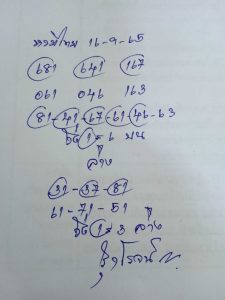 16-9-65
681 641 167
061 046 163
81-41-67-61-46-63
1 6 บน
ล่าง
31-37-81
61-71-51
1 3 ล่าง